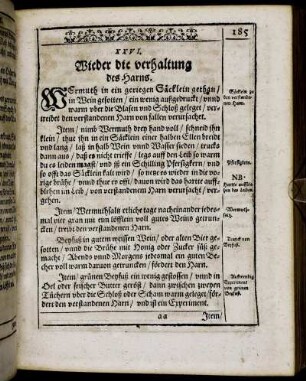 185
XXVI.
Wieder die verhaltung
des Harns.
Wermuth in ein geringes Säcklein gethan/
in Wein gesotten/ ein wenig außgedruckt/ vnnd
warm vber die Blasen vnd Schloß geleget/ ver-
treibet den verstandenen Harn von fallen verursachet.
Item/ nimb Wermuth drey hand voll/ schneid ihn
klein/ thue ihn in ein Säcklein einer halben Ellen breidt
vnd lang/ laß in halb Wein vnnd Wasser sieden/ trucks
dann aus/ daß es nicht trieffe/ leg auff den Leib so warm
du es leiden magst/ vnd iß ein Schilling Pfersigkern/ vnd
so offt das Säcklein kalt wird/ so netz es wieder in die vo-
rige brühe/ vnnd thue es offt/ dauon wird das harte auff-
blehen im Leib/ von verstandenem Harn verursachet/ ver-
gehen.
Item/ Wermuthsaltz etliche tage nach einander jedes-
mal vier gran mit ein löfflein voll guten Weins getrun-
cken/ treibt den verstandenen Harn.
Beyfuß in gutem weissen Wein/ oder alten Bier ge-
sotten/ vnnd die Brühe mit Honig oder Zucker süß ge-
macht/ Abends vnnd Morgens jedesmal ein guten Be-
cher voll warm dauon getruncken/ fördert den Harn.
Item/ grünen Beyfuß ein wenig gestossen/ vnnd in
Oel oder frischer Butter geröst/ dann zwischen zweyen
Tüchern vber die Schloß oder Scham warm geleget/ för-
dert den verstandenen Harn/ vnd ist ein Experiment.
aa
Item/
Säcklein zu
den verstande-
nen Harn.
Pfersigkern.
NB.
Wermuth-
saltz.
Tranck von
Beyfuß.
Experiment
von grünen
Beyfuß.